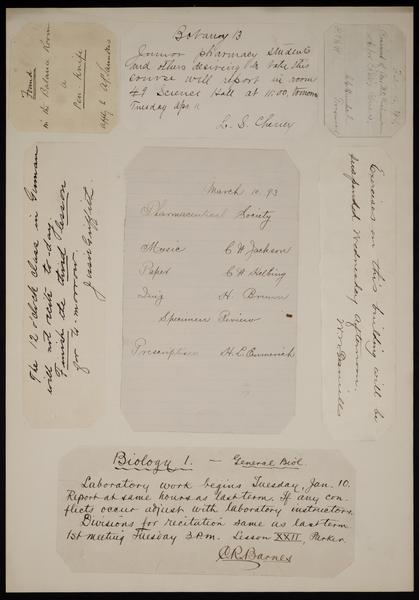 Found
in the Balance Room
a
Pen-Knife
apply to A. P. Saunders
Botany B
Junior pharmacy students
and others desiring to take this
course will report in room
49 Science Hall at 11:00, tomorrow
Tuesday Apr. 11
L. S. Cheney
The 12 o'clock class in German
will not recite to-day.
Finish the third lesson
for to-morrow.
Jessie Griffith.
March 10, 93
Pharmaceutical Society
Music C. W. Jackson
Paper C. H. Helbing
Quiz H. Brown
Specimen Review
Prescriptions H. L. Emmerich
Exercises in this building will be
suspended Wednesday afternoon.
W. W. Daniells
Biology 1. — General Biol.
Laboratory work begins Tuesday, Jan. 10.
Report at same hours as last term. If any con-
flicts occur adjust with laboratory instructors.
Divisions for recitation same as last term
1st meeting Tuesday 3 P.M. Lesson XXII, Parker.
C. R. Barnes